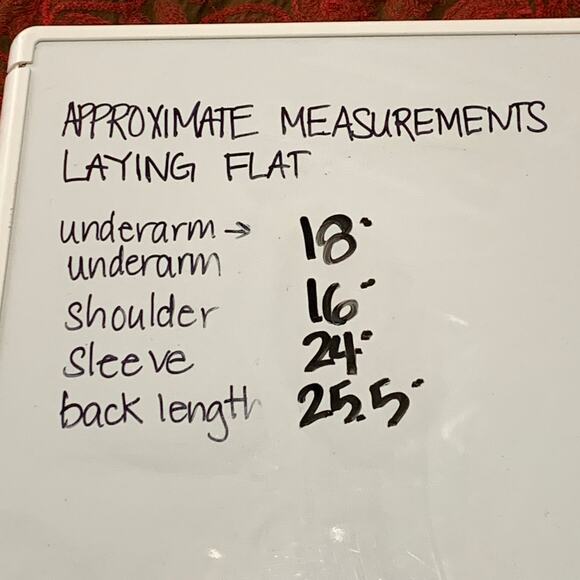 APPROXIMATE MEASUREMENTS
LAYING FLAT
underarm → 18"
underarm
shoulder 16"
sleeve 24"
back length 25.5"